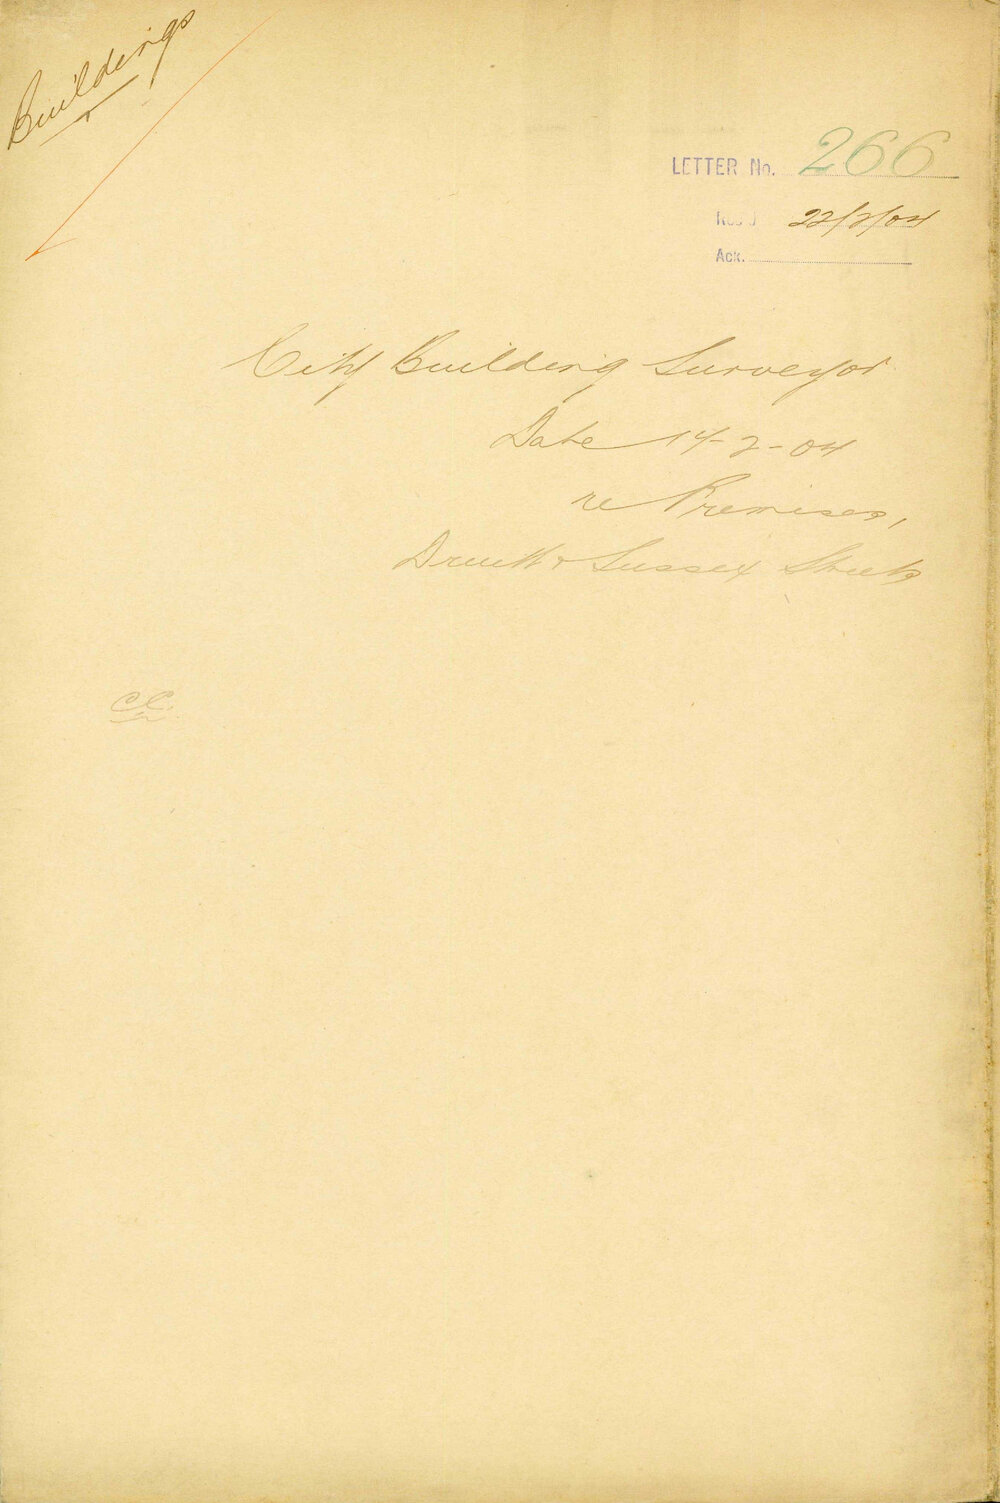 Buildings
LETTER No. 266
Rec'd 22/2/04
Ack.
City Building Surveyor
Date 14-2-04
re Premises,
Druitt & Sussex Streets
CC